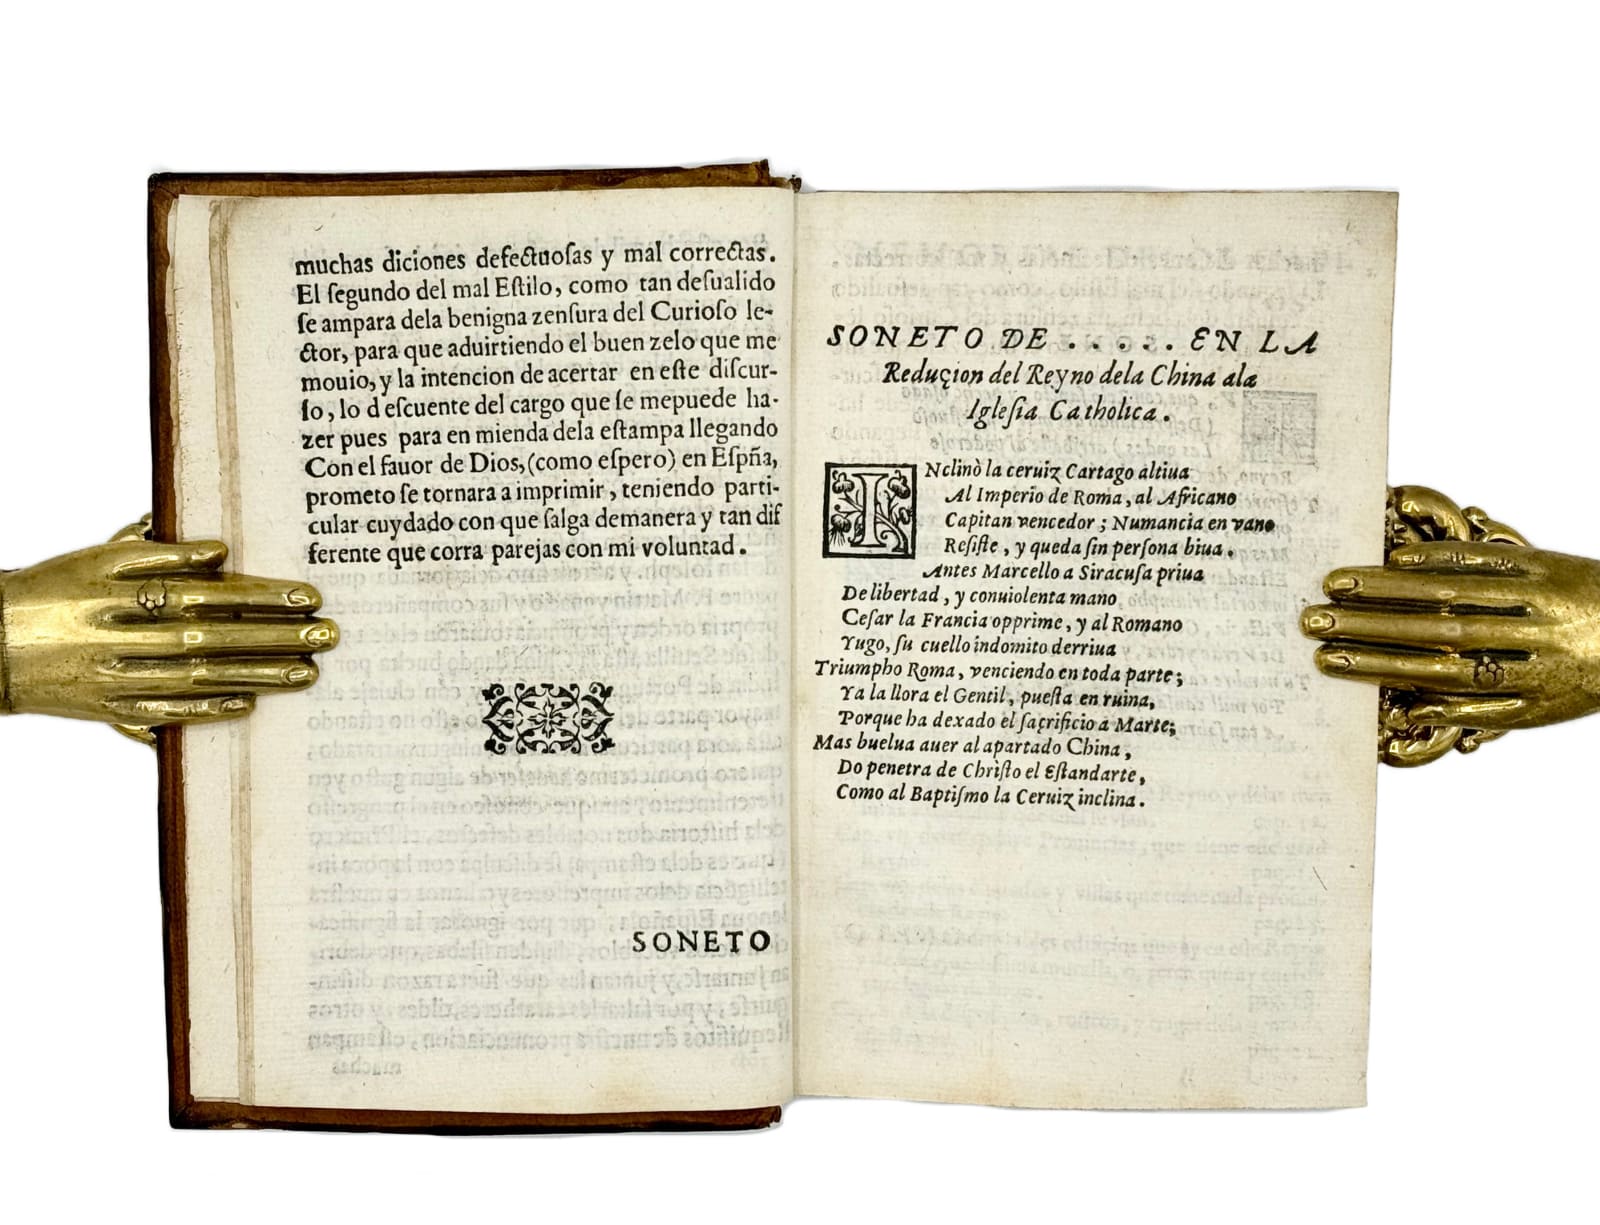 muchas diciones defectuoſas y mal correctas.
El ſegundo del mal Eſtilo, como tan deſualido
ſe ampara dela benigna zenſura del Curioſo le-
ctor, para que aduirtiendo el buen zelo que me
mouio, y la intencion de acertar en eſte diſcur-
ſo, lo d eſcuente del cargo que ſe mepuede ha-
zer pues para en mienda dela eſtampa llegando
Con el fauor de Dios, (como eſpero) en Eſpña,
prometo ſe tornara a imprimir, teniendo parti-
cular cuydado con que ſalga demanera y tan dif
ferente que corra parejas con mi voluntad.
SONETO
SONETO DE . . . . . EN LA
Reduçion del Reyno dela China ala
Igleſia Catholica.
INclinò la ceruiz Cartago altiua
Al Imperio de Roma, al Africano
Capitan vencedor; Numancia en vano
Reſiſte, y queda ſin perſona biua.
Antes Marcello a Siracuſa priua
De libertad, y conuiolenta mano
Ceſar la Francia opprime, y al Romano
Yugo, ſu cuello indomito derriua
Triumpho Roma, venciendo en toda parte;
Ya la llora el Gentil, pueſta en ruina,
Porque ha dexado el ſacrificio a Marte;
Mas buelua auer al apartado China,
Do penetra de Chriſto el Eſtandarte,
Como al Baptiſmo la Ceruiz inclina.